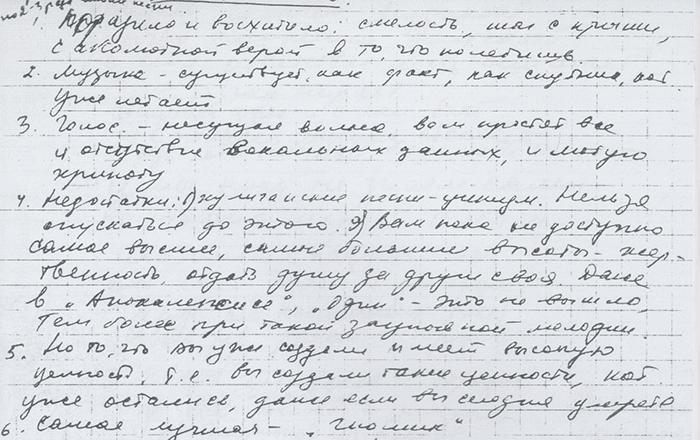 Поразило и восхитило: смелость, шаг с крыши,
с абсолютной верой в то, что полетишь.
2. Музыка – существует как факт, как спутник, кот.
уже летает
3. Голос. – несущая волна, вам простят все
и отсутствие вокальных данных, и любую
хрипоту
4. Недостатки: 1) хулиганские песни – цинизм. Нельзя
опускаться до этого. 2) Вам пока не доступно
самое высшее, самые большие высоты – жер-
твенность, отдать душу за други своя. Даже
в „Апокалепсисе", „Один" – это не вышло,
Тем более при такой мелодии.
5. Но то, что вы уже создали имеет высокую
ценность, т.е. вы создали такие ценности, кот.
уже остались, даже если вы сегодня умрете
6. Самая лучшая – „Гномик"